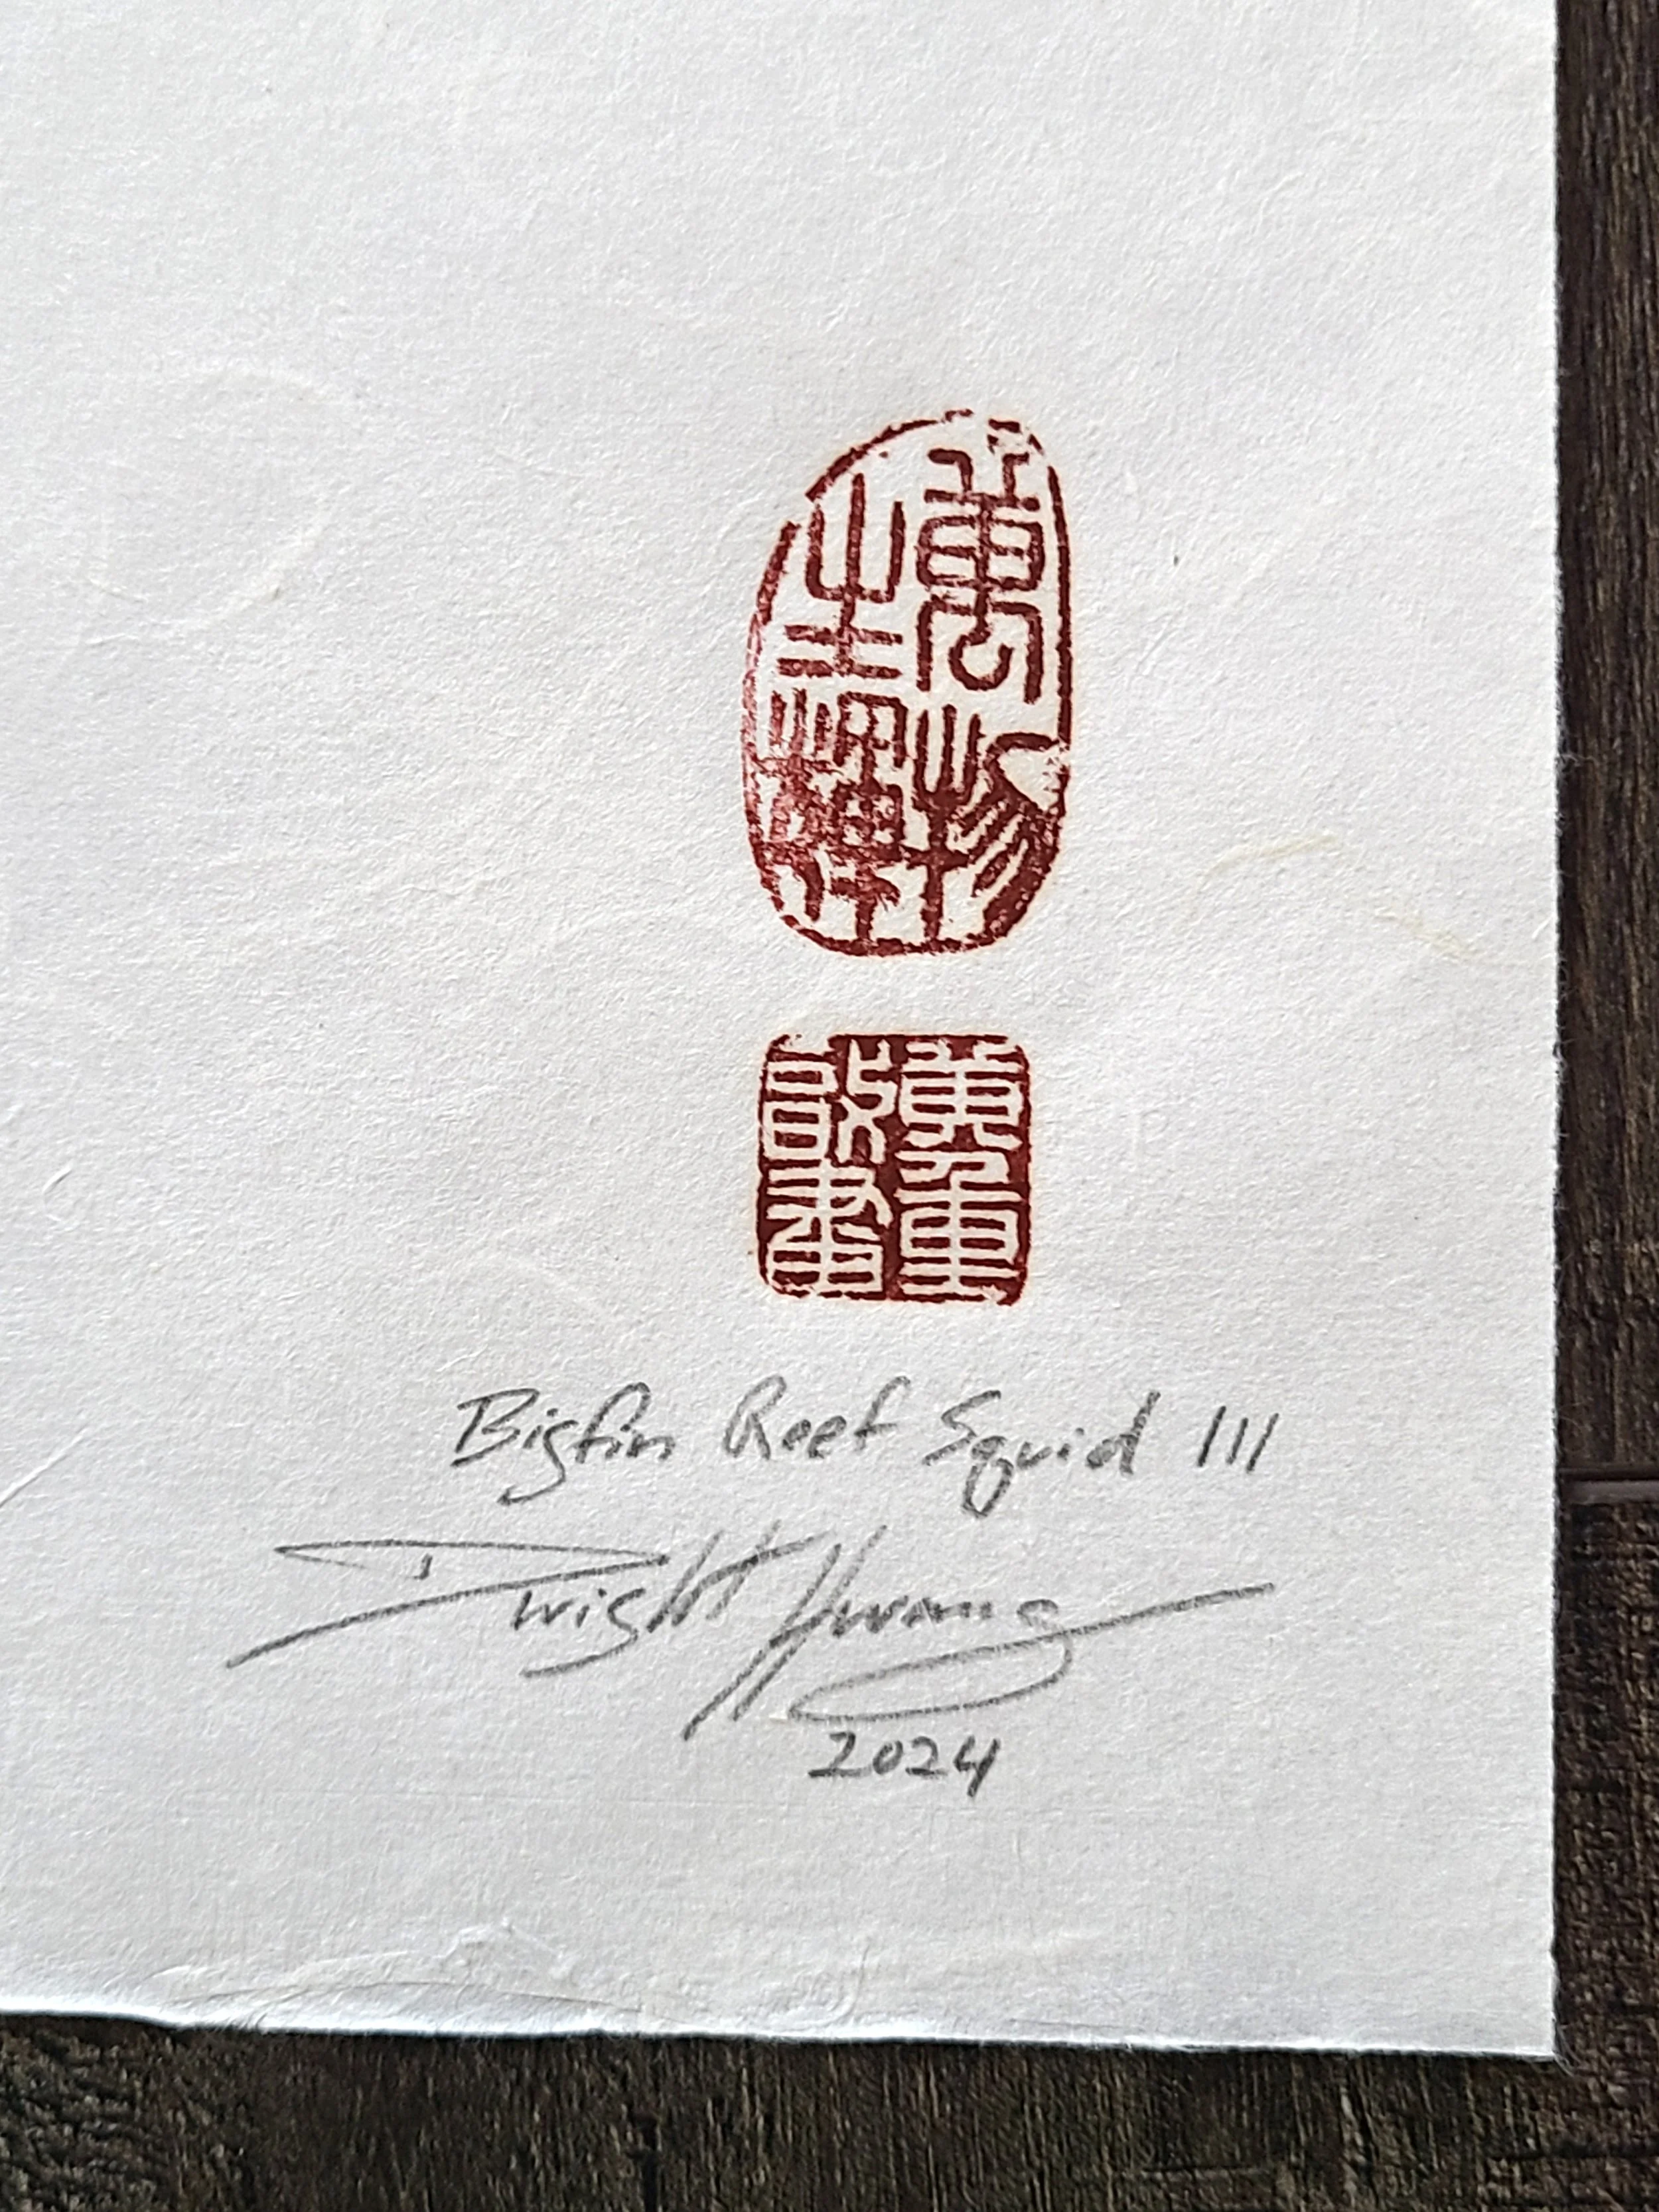 萬物
生輝
黃重
啟
Bigfin Reef Squid III
Dwight Hwang
2024